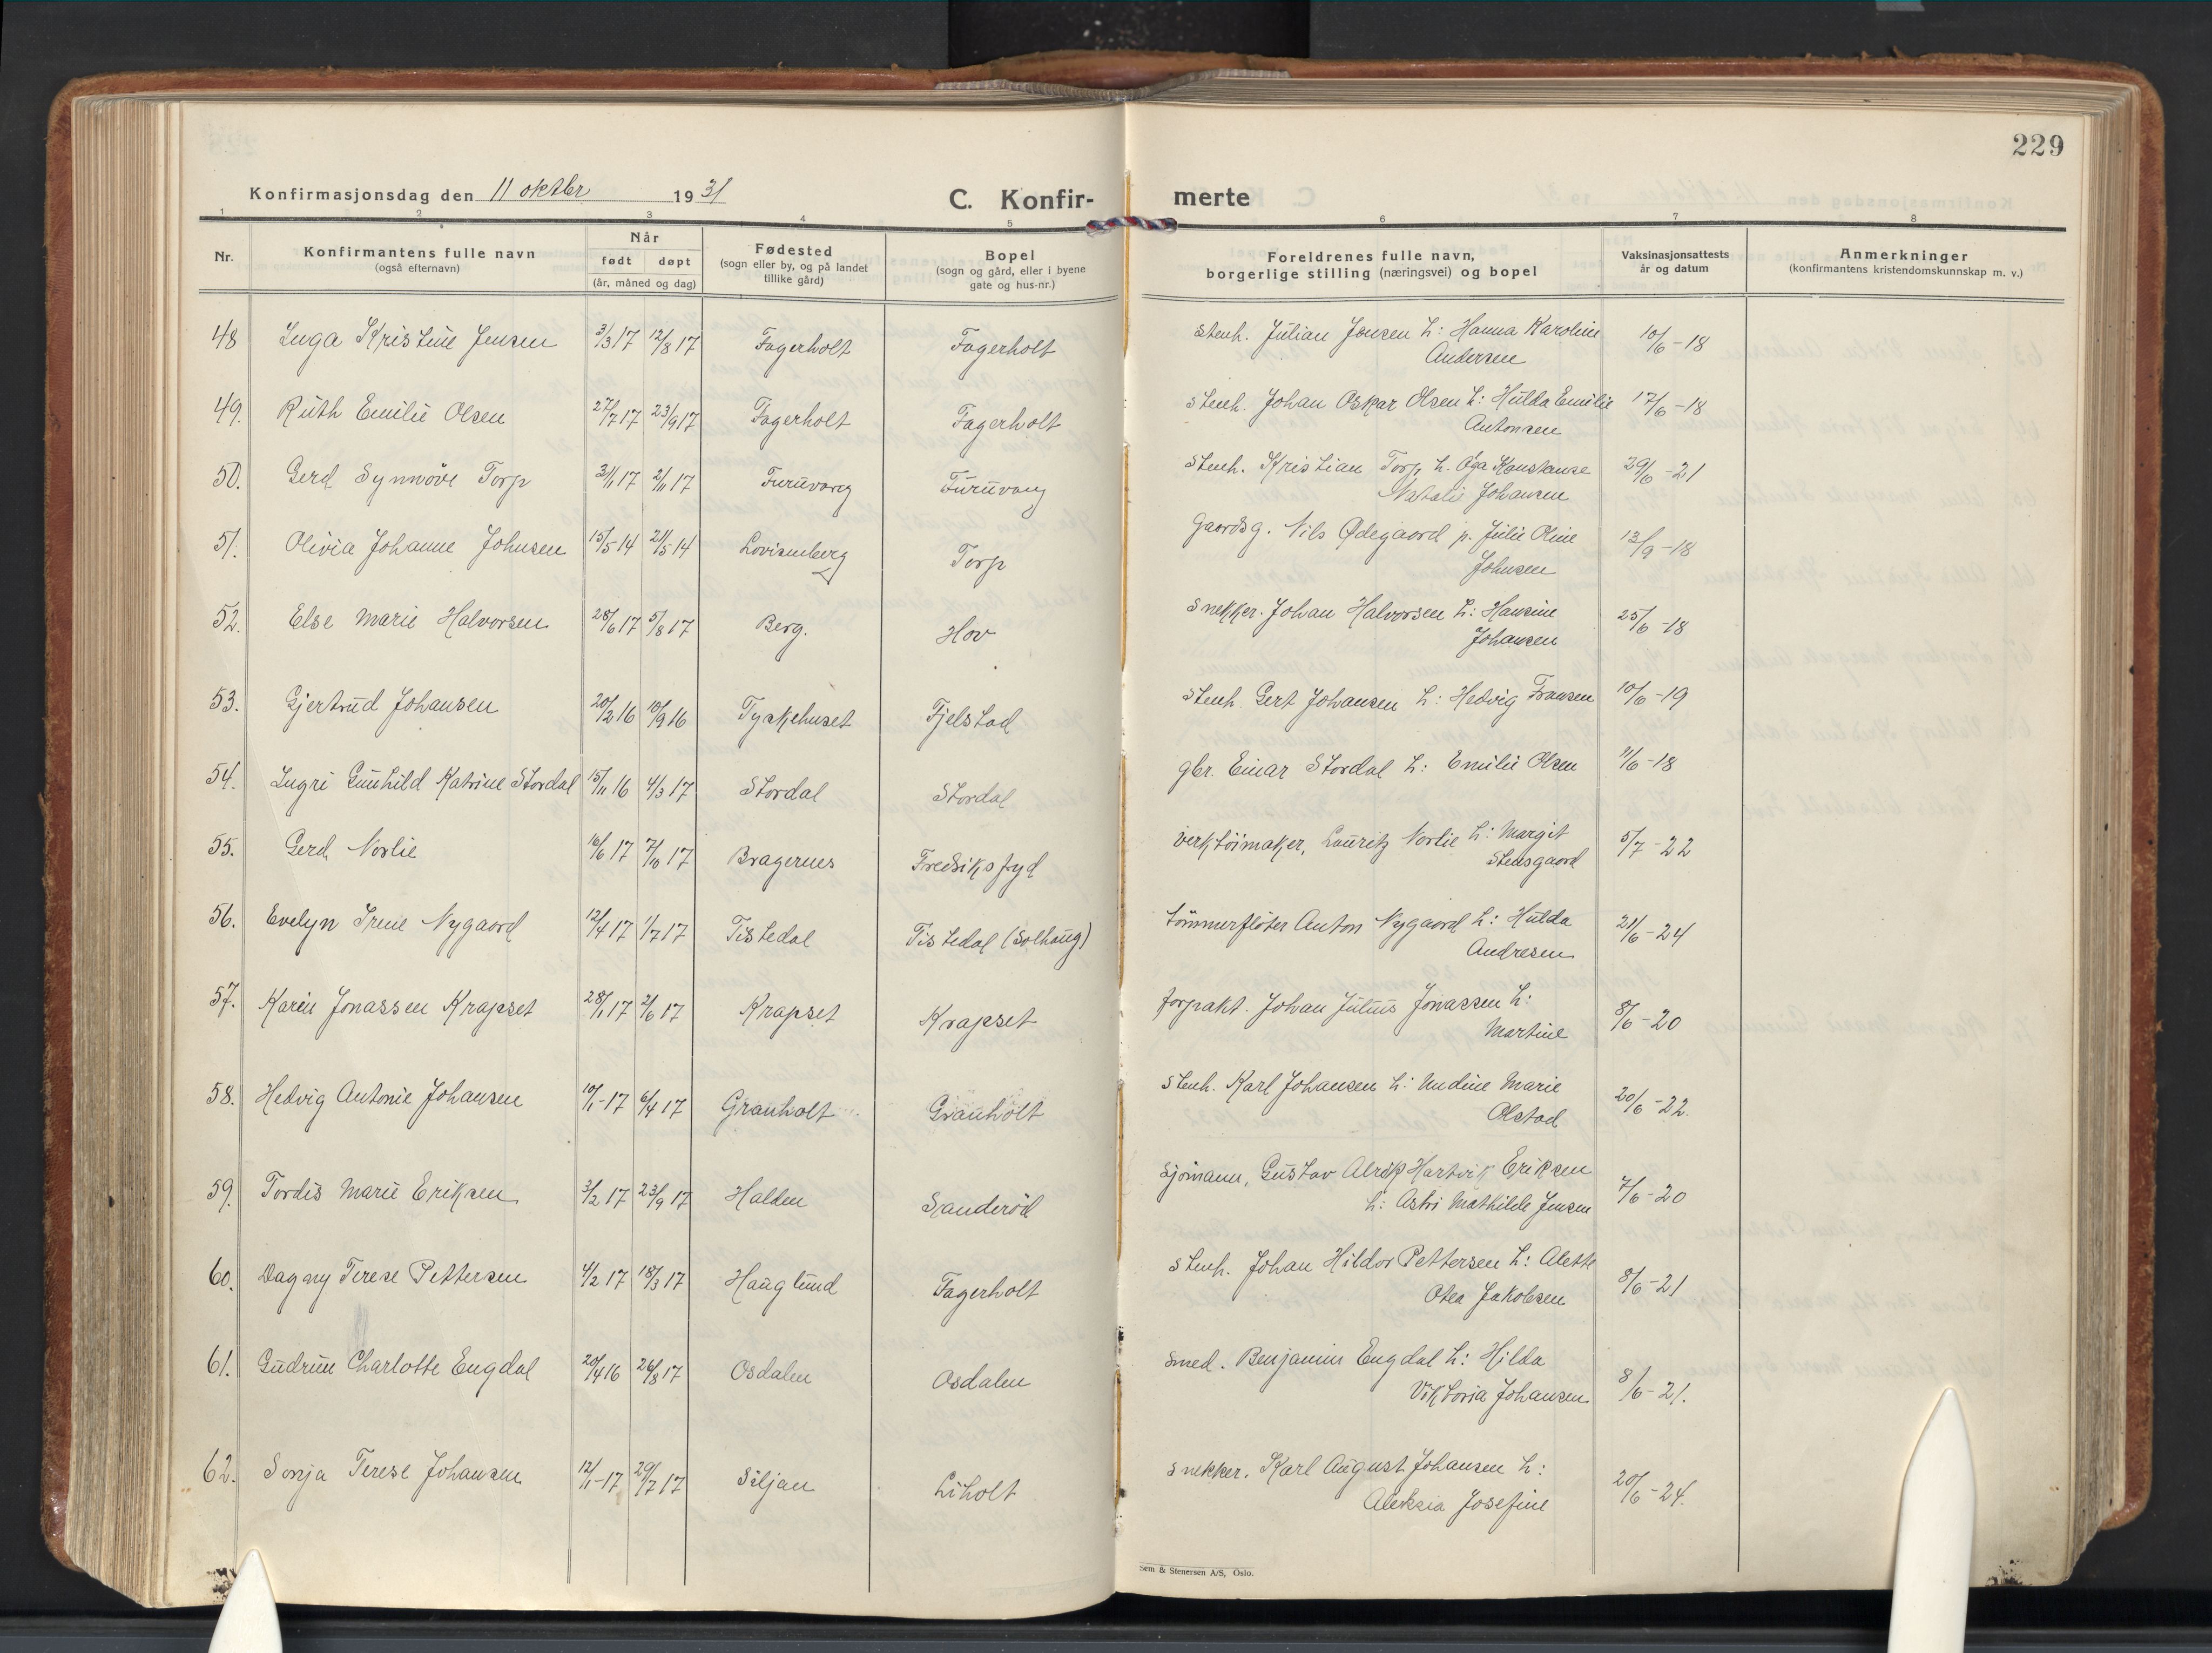 229
Konfirmasjonsdag den 11 oktbr 1931
C. Konfir- merte
1 2 3 4 5 6 7 8
Nr.
Konfirmantens fulle navn
(også efternavn)
Når
født døpt
(år, måned og dag)
Fødested
(sogn eller by, og på landet
tillike gård)
Bopel
(sogn og gård, eller i byene
gate og hus-nr.)
Foreldrenes fulle navn,
borgerlige stilling (næringsvei) og bopel
Vaksinasjonsattests
år og datum
Anmerkninger
(konfirmantens kristendomskunnskap m. v.)
48 Inga Kristine Jensen 3/3 17 12/8 17 Fagerholt Fagerholt Stenh. Julian Jensen h: Hanna Karoline 10/6-18
Andersen
49. Ruth Emilie Olsen 27/7 17 23/9 17 Fagerholt Fagerholt Stenh. Johan Oskar Olsen h: Hulda Emilie 17/6-18
Antonsen
50. Gerd Synnöve Torp 2/11 17 Furuvang Furuvang Stenh. Kristian Torp h. Konstanse 29/6-21
Natalie Johansen
51. Olivia Johanne Johnsen 15/5 14 21/5 14 Lovisenberg Torp Gaardsg. Nils Ødegaard p. Julie Oline 13/9-18
Johnsen
52. Else Marie Halvorsen 28/6 17 5/8 17 Berg. Hov Snekker. Johan Halvorsen h: Hansine 25/6-18
Johansen
53. Gjertrud Johansen 20/2 16 10/9 16 Tyskehuset Fjelstad Stenh. Gert Johansen h: Hedvig Fransen 10/6-19
54. Ingri Gunhild Katrine Stordal 15/11 16 4/3 17 Stordal Stordal gbr. Einar Stordal h: Emilie Olsen 11/6-18
55. Gerd Norlie 16/6 17 17 Bragernes Fredriksfryd Verktöimaker, Lauritz Norlie h: Margit 5/7-22
Stensgaard
56. Evelyn Irene Nygaard 12/4 17 1/7 17 Tistedal Tistedal (Solhaug) Tömmerflöter Anton Nygaard h: Hulda 21/6-24
Andresen
57. Karin Jonassen Krapset 28/1 17 2/6 17 Krapset Krapset forpakt. Johan Julius Jonassen h: 8/6-20
Martine
58. Hedvig Antonie Johansen 10/1-17 6/4 17 Granholt Granholt Stenh. Karl Johansen h: Undine Marie 20/6-22.
Olstad
59. Tordis Marie Eriksen 3/2 17 23/9 17 Halden Sanderöd Sjömann, Gustav Alrik Hartvik Eriksen 7/6-20
h: Astri Mathilde Jensen
60. Dagny Terese Pettersen 4/2 17 18/3 17 Hauglund Fagerholt Stenh. Johan Hildor Pettersen h: Alette 8/6-21
Otea Jakobsen
61. Gudrun Charlotte Engdal 20/4 16 26/8 17 Osdalen Osdalen Smed. Benjamin Engdal h: Hilda 8/6-21.
Viktoria Johansen
62. Sonja Terese Johansen 12/1-17 29/7 17 Siljan Liholt Snekker. Karl August Johansen h: 20/6-24.
Aleksia Josefine
Sem & Stenersen A/S, Oslo.